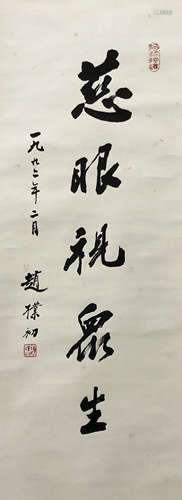 慈眼視眾生
一九九二年二月
趙樸初